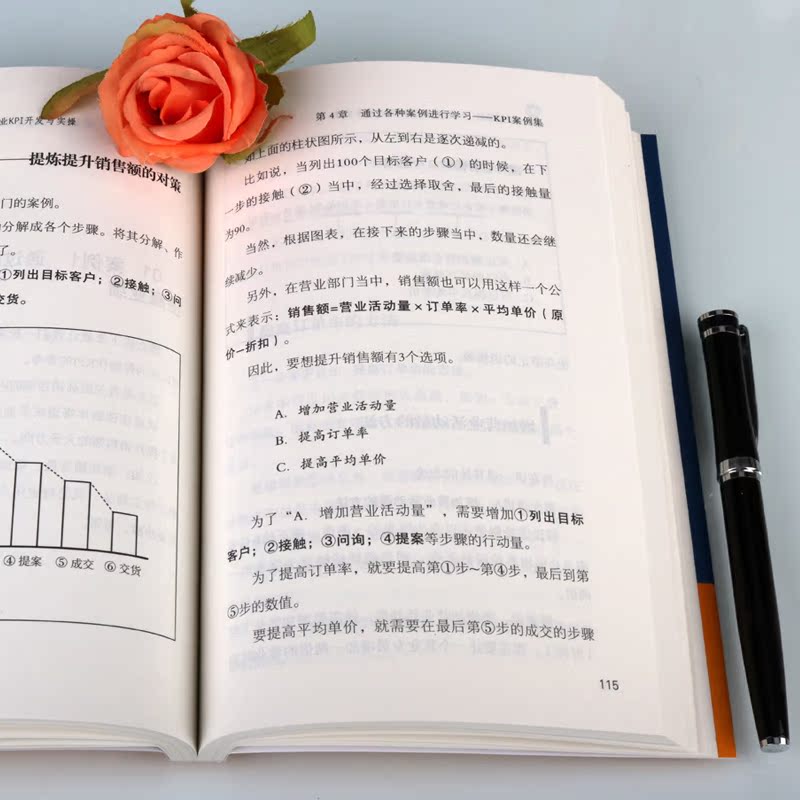 业KPI开发与实操
——提炼提升销售额的对策
门的案例。
分解成各个步骤。将其分解、作
了。
①列出目标客户；②接触；③问
交货。
④提案 ⑤成交 ⑥交货
第4章 通过各种案例进行学习——KPI案例集
如上面的柱状图所示，从左到右是逐次递减的。
比如说，当列出100个目标客户（①）的时候，在下
一步的接触（②）当中，经过选择取舍，最后的接触量
为90。
当然，根据图表，在接下来的步骤当中，数量还会继
续减少。
另外，在营业部门当中，销售额也可以用这样一个公
式来表示：销售额=营业活动量×订单率×平均单价（原
价−折扣）。
因此，要想提升销售额有3个选项。
A. 增加营业活动量
B. 提高订单率
C. 提高平均单价
为了“A. 增加营业活动量”，需要增加①列出目标
客户；②接触；③问询；④提案等步骤的行动量。
为了提高订单率，就要提高第①步~第④步，最后到第
⑤步的数值。
要提高平均单价，就需要在最后第⑤步的成交的步骤
115